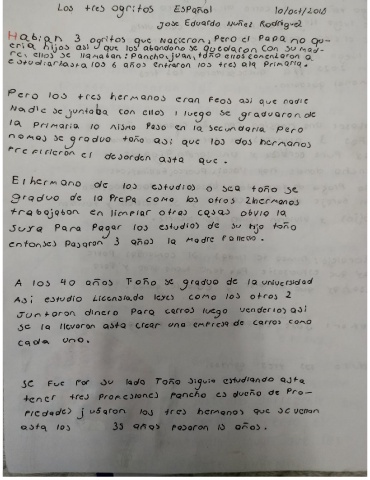 Los tres ogritos Español 10/oct/2018
Jose Eduardo Nuñez Rodrigez
Habian 3 ogritos que nacieron, Pero el Papa no que
eria hijos asi que los abandono se quedaron con su mad
re, ellos se llamaban: Pancho, juan, toño ellos comentaron a
estudiar hasta los 6 años entraron los tres ala Primaria.
Pero los tres hermanos eran Feos asi que nadie
Nadie se juntaba con ellos i luego se graduaron de
la Primaria lo mismo Paso en la secundaria Pero
nomas se graduo toño asi que los dos hermanos
Prefirieron el desorden asta que.
El hermano de los estudios o sea toño se
graduo de la Prepa como los otros 2 hermanos
trabajaban en limpiar otras casas obvio la
suya Para Pagar los estudios de su hjo toño
entonses Pasaron 3 años la madre Fallecio.
A los 40 años Toño se graduo de la universidad
Asi estudio Licensiado leyes como los otros 2
Juntaron dinero Para carros luego venderlos asi
se la llevaron asta crear una empresa de carros como
cada uno.
se Fue Por su lado Toño siguio estudiando asta
tener tres Profesiones Pancho es dueño de Pro
Piedades juraron los tres hermanos que se verian
asta los 35 años Pasaron 15 años.